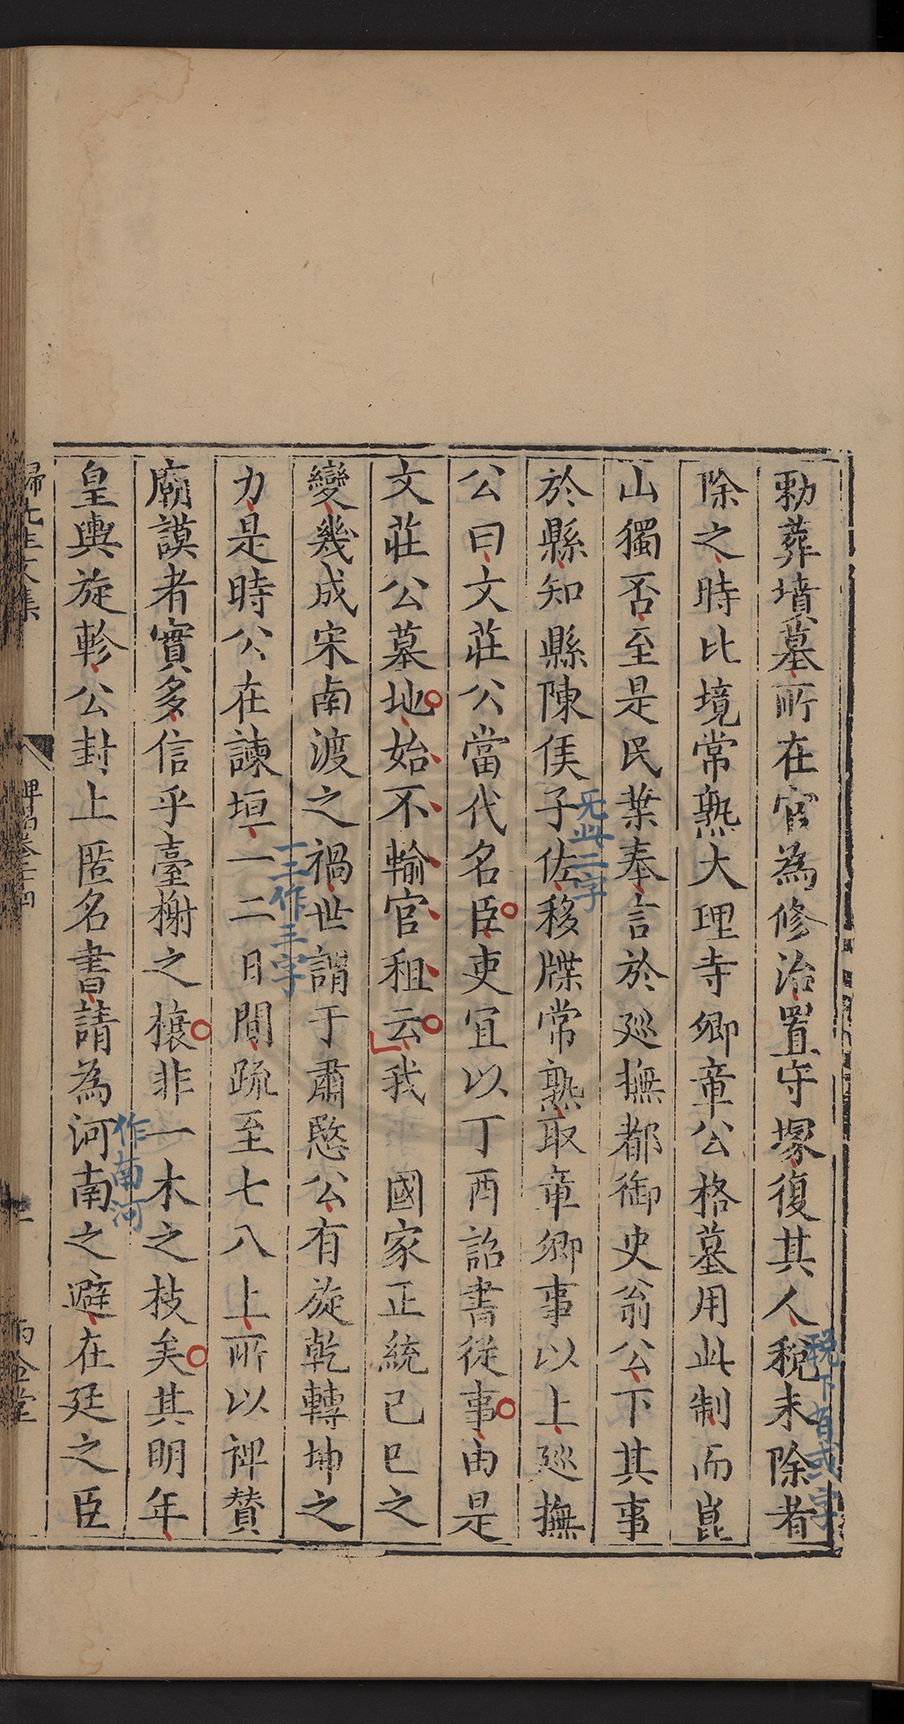 勅葬墳墓所在官為修治置守塚復其人稅未除者
稅下有或字
除之時比境常熟大理寺卿章公格墓用此制而崑
山獨否至是民葉奉言於廵撫都御史翁公下其事
於縣知縣陳侯子佐移牒常熟取章卿事以上廵撫
旡此二字
公曰文莊公當代名臣吏宜以丁酉詔書從事由是
文莊公墓地始不輸官租云我 國家正統己巳之
變幾成宋南渡之禍世謂于肅愍公有旋乾轉坤之
一二作三字
力是時公在諫垣一二日間疏至七八上所以裨賛
廟謨者實多信乎臺榭之榱非一木之枝矣其明年
皇輿旋軫公封上匿名書請為河南之避在廷之臣
作南河
歸先生文集